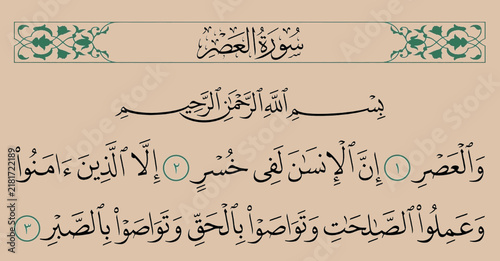 سُورَةُ العَصْرِ
بِسْمِ ٱللَّهِ ٱلرَّحْمَٰنِ ٱلرَّحِيمِ
وَٱلْعَصْرِ ١ إِنَّ ٱلْإِنسَٰنَ لَفِى خُسْرٍ ٢ إِلَّا ٱلَّذِينَ ءَامَنُوا۟
وَعَمِلُوا۟ ٱلصَّٰلِحَٰتِ وَتَوَاصَوْا۟ بِٱلْحَقِّ وَتَوَاصَوْا۟ بِٱلصَّبْرِ ٣
Adobe Stock | #2181722189